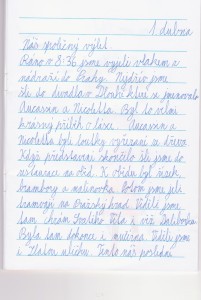 1. dubna
Náš společný výlet
Ráno v 8:36 jsme vyjeli vlakem z
nádraží do Prahy. Nejdřív jsme
šli do divadla v Dlouhé ulici a jmenovalo
Aucassin a Nicoletta. Byl to velmi
krásný příběh o lásce. Aucassin a
Nicoletta byli loutky vyřezané ze dřeva.
Když představení skončilo šli jsme do
restaurace na oběd. K obědu byl řízek,
brambory a malinovka. Potom jsme jeli
tramvají na Pražský hrad. Viděli jsme
tam chrám Svatého Víta i věž Daliborku.
Byla tam dokonce i mučírna. Viděli jsme
i Zlatou uličku. Tento náš poslední